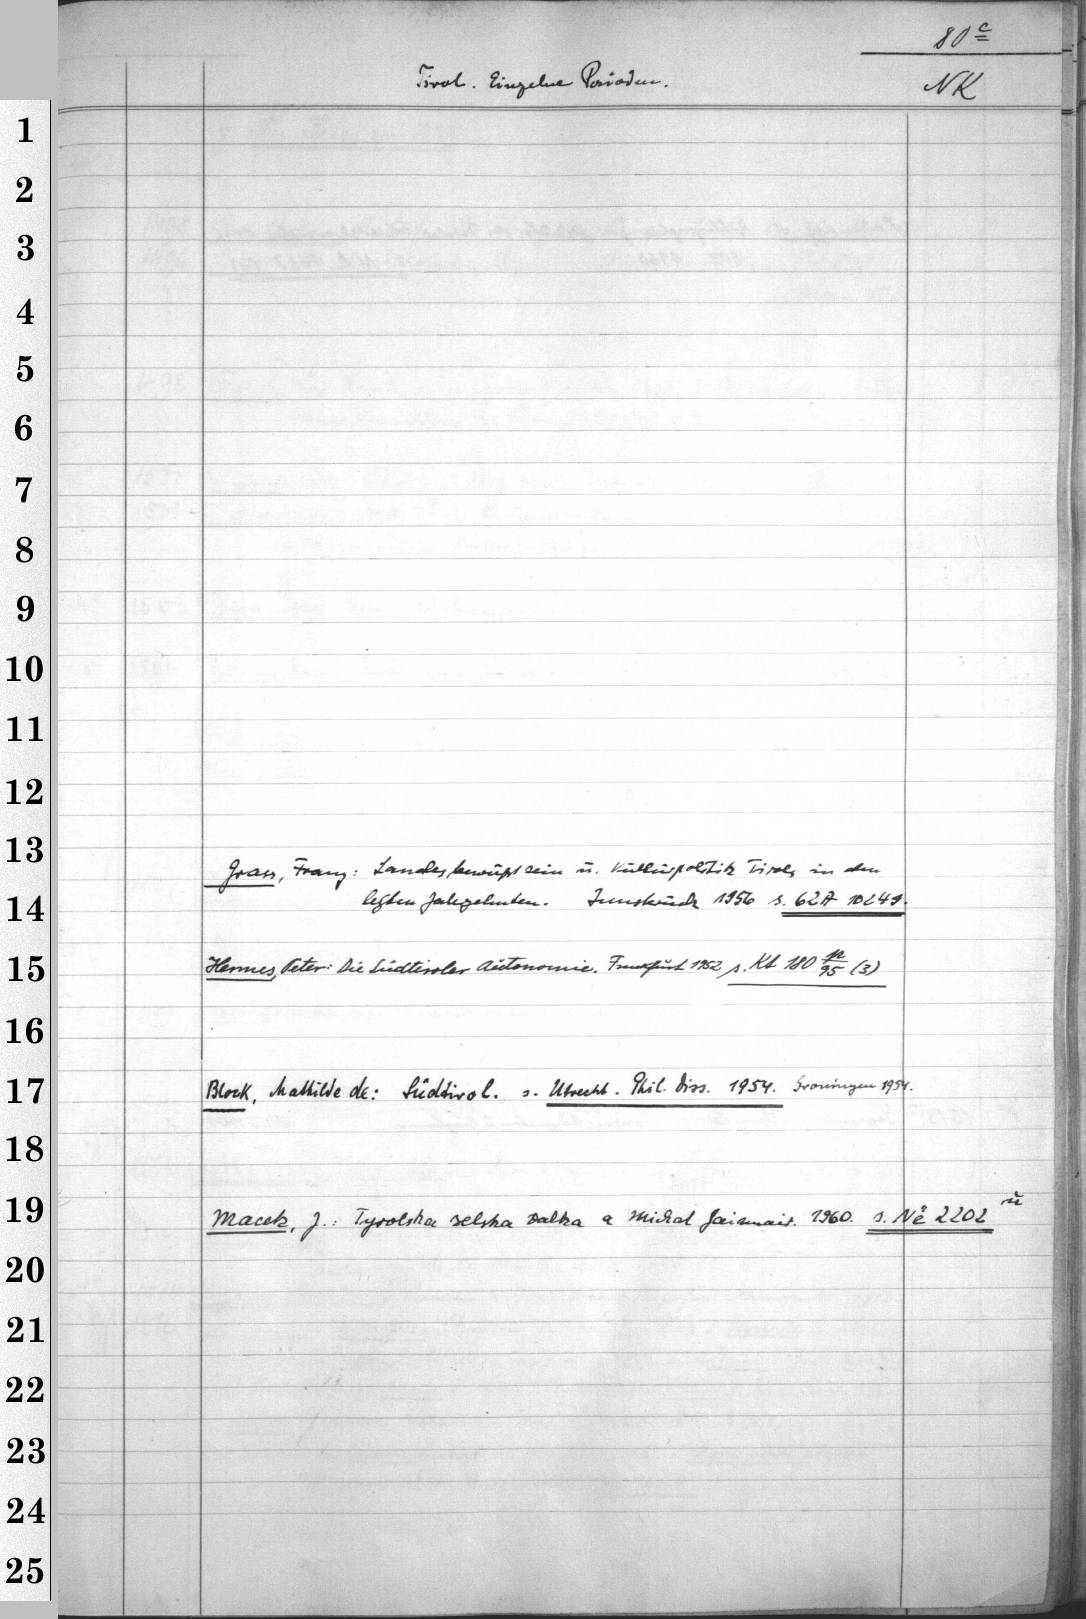 80 c
Tirol. Einzelne Perioden.
NK
1
2
3
4
5
6
7
8
9
10
11
12
13
Grass, Franz: Landesbewußtsein u. Kulturpolitik Tirols in den
14
letzten Jahrzehnten. Innsbruck 1956 s. 62 A 10249.
15
Hermes, Peter: Die Südtiroler Autonomie. Frankfurt 1952 s. Kt 180 (3)
16
17
Block, Mathilde de: Südtirol. s. Utrecht. Phil. Diss. 1954. Groningen 1954.
18
19
Macek, J.: Tyrolska selska valka a Michal Gaismair. 1960. s. Ně 2202
20
21
22
23
24
25